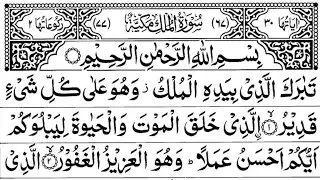 اٰیاتها ۳۰ (۶۷) سُوْرَةُ الْمُلْكِ مَكِّیَّةٌ (۷۷) رکوعاتها ۲
بِسْمِ اللّٰهِ الرَّحْمٰنِ الرَّحِیْمِ
تَبٰرَكَ الَّذِیْ بِیَدِهِ الْمُلْكُ ز وَهُوَ عَلٰی كُلِّ شَیْءٍ
قَدِیْرُ ۙ﴿۱﴾ الَّذِیْ خَلَقَ الْمَوْتَ وَالْحَیٰوةَ لِیَبْلُوَكُمْ
اَیُّكُمْ اَحْسَنُ عَمَلًا ؕ وَهُوَ الْعَزِیْزُ الْغَفُوْرُ ۙ﴿۲﴾ الَّذِیْ